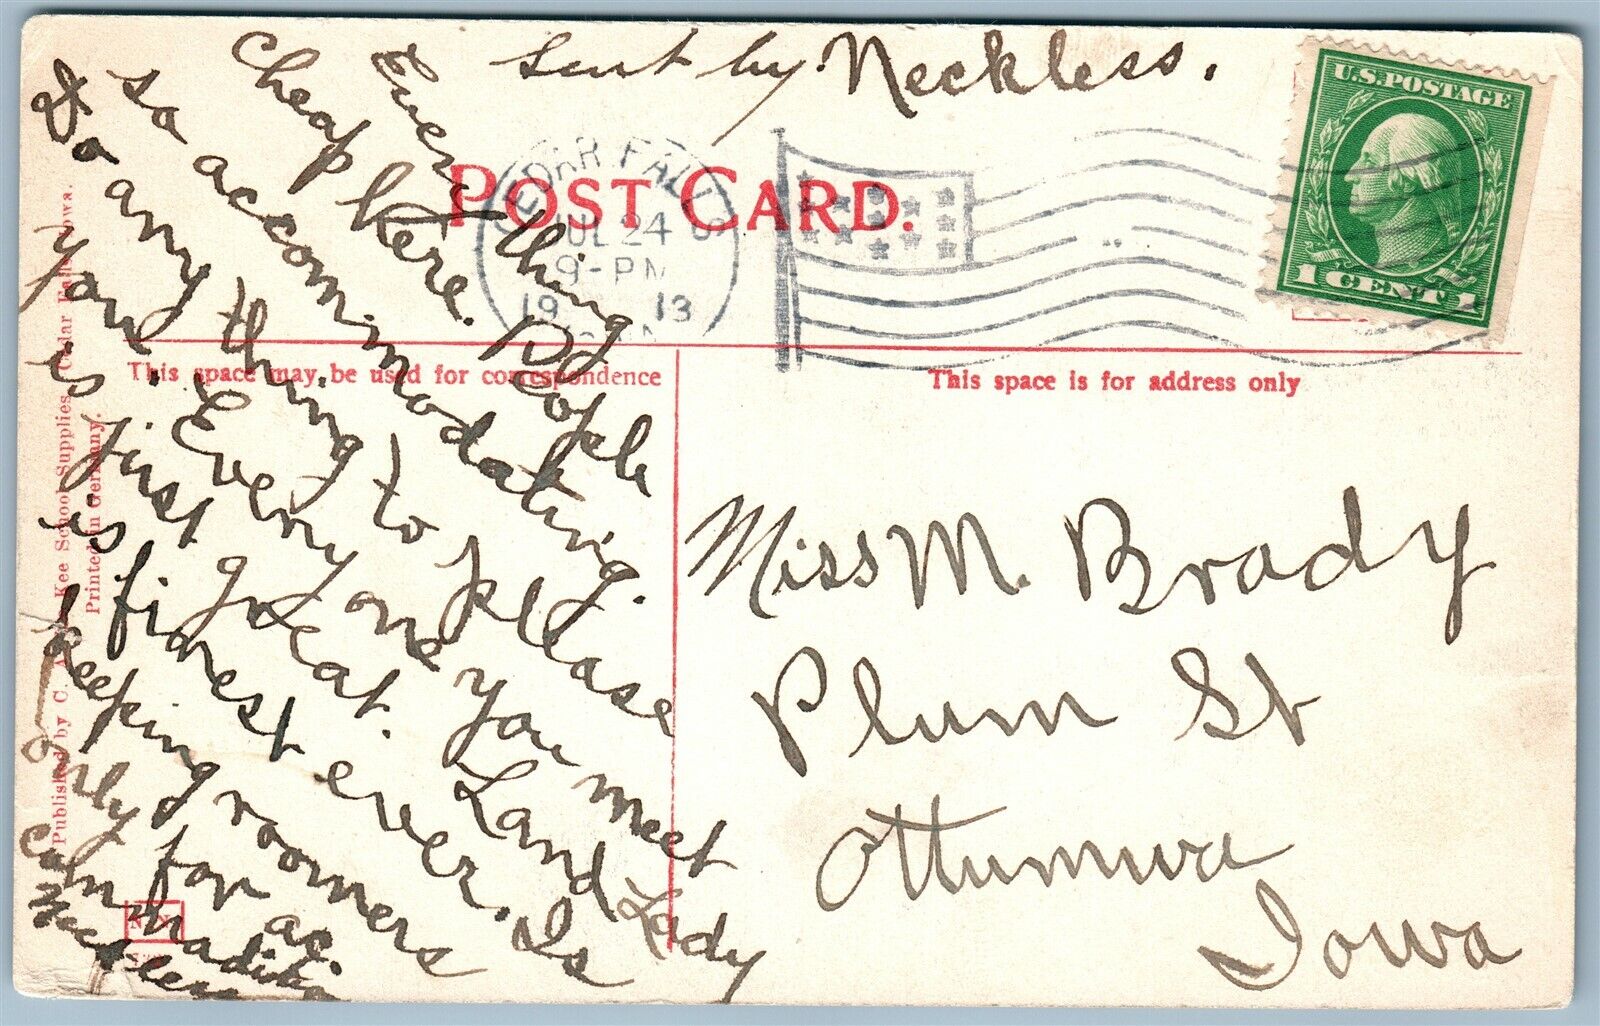 Sent by. Neckless.
U.S. POSTAGE
1 CENT 1
POST CARD.
CEDAR FALLS
JUL 24
9-PM
1913
This space may be used for correspondence
This space is for address only
Every thing
cheap here. People
so accommodating.
Do any thing to please
you. Every one you meet
is first great. Land Lady
is finest ever. Is
keeping roomers
only for ac.
commadition
Neckless
Miss M. Brady
Plum St
Ottumwa
Iowa
Published by C. A. Kee School Supplies, Cedar Falls, Iowa.
Printed in Germany.